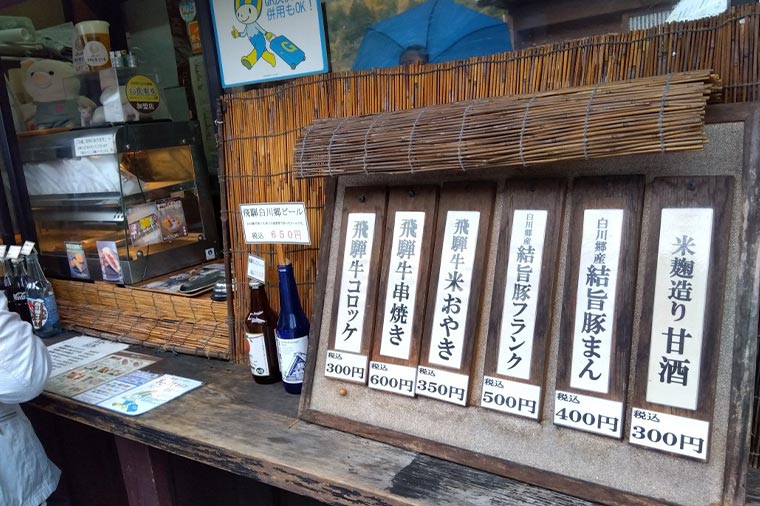 併用もOK!
加盟店
飛騨白川郷ビール
税込 650円
飛騨牛コロッケ
税込
300円
飛騨牛串焼き
税込
600円
飛騨牛米おやき
税込
350円
白川郷産
結旨豚フランク
税込
500円
白川郷産
結旨豚まん
税込
400円
米麹造り 甘酒
税込
300円